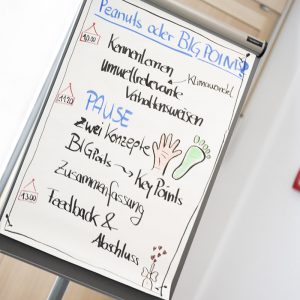 Peanuts oder BIG POINTS?
10.00
Kennenlernen
Umweltrelevante Klimawandel
Verhaltensweisen
11.20
PAUSE
zwei Konzepte
BIG Points → Key Points
Zusammenfassung
13.00
Feedback &
Abschluss